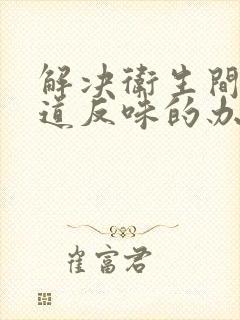 解决衛生間
道反味的办
崔富君